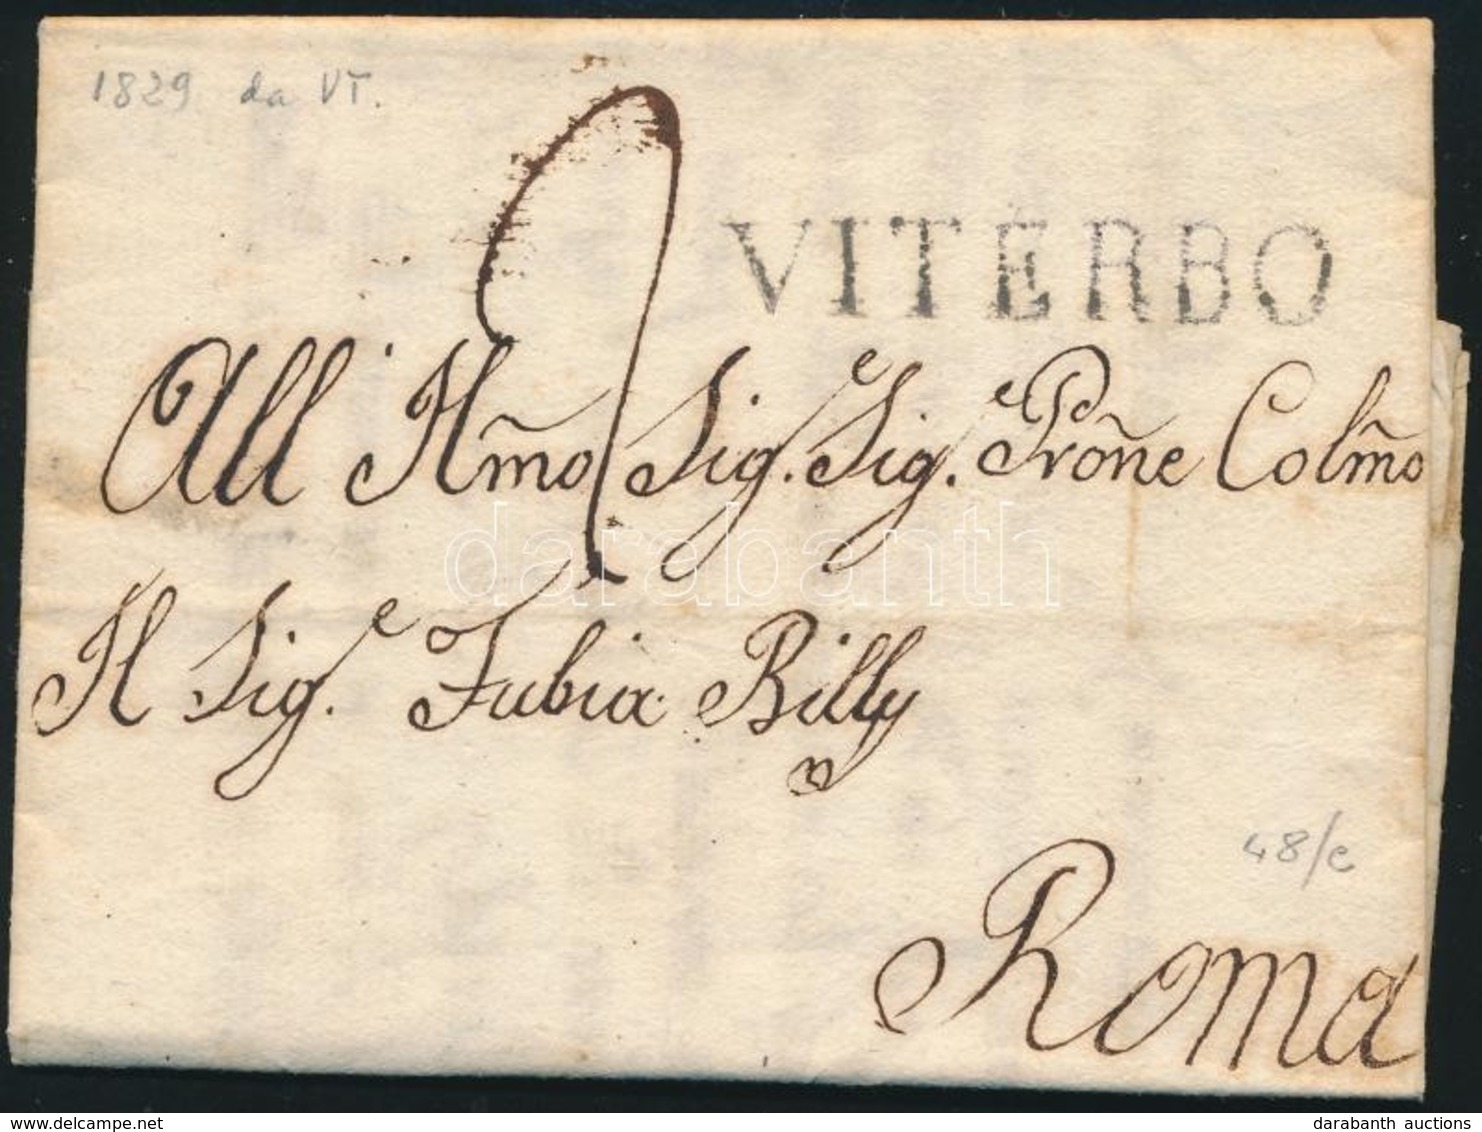 1829 da VT.
2
VITERBO
All' Illm̃o Sig.e Sig.e Prõne Colm̃o
Il Sig.e Fabia Billy
48/e
Roma
darabanth
www.delcampe.net
darabanth auctions